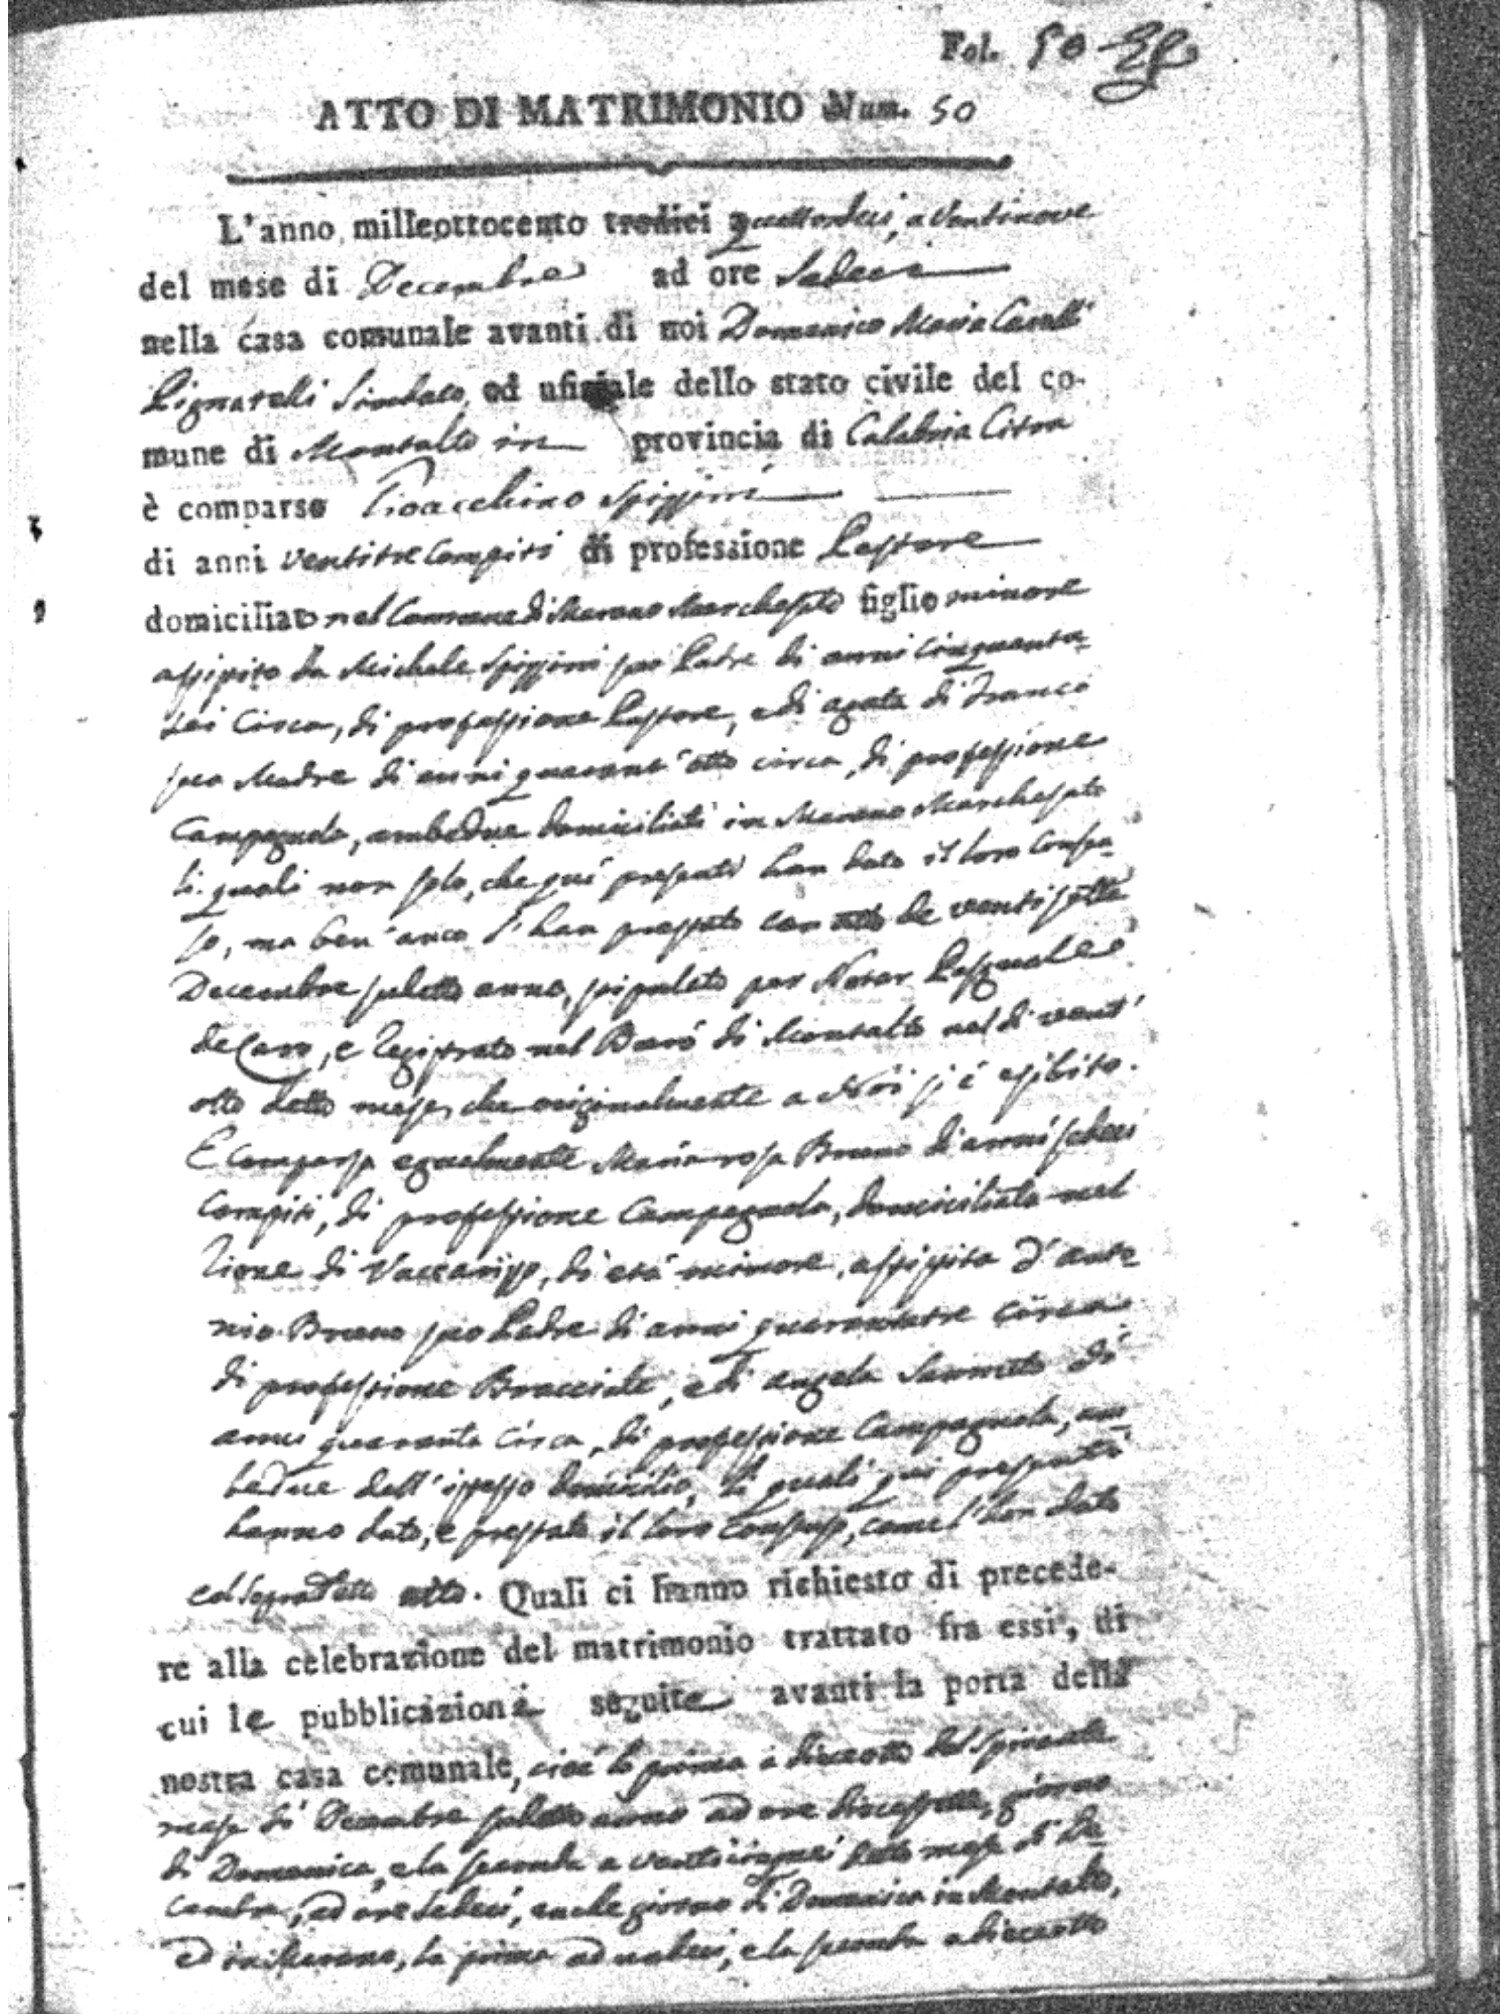 Fol. 50
ATTO DI MATRIMONIO Num. 50
L'anno milleottocento tredici quattordici, a ventinove
del mese di Decembre ad ore Sedeci
nella casa comunale avanti di noi Domenico Maria Cavalli
Pignatelli Sindaco, ed ufiziale dello stato civile del co-
mune di Montalto in provincia di Calabria Citra
è comparso Gioacchino Spizzirri
di anni ventitre compiti di professione Pastore
domiciliato nel Comune di Marano Marchesato figlio minore
assistito da Michele Spizzirri suo Padre di anni cinquanta-
sei circa, di professione Pastore, e di Agata di Franco
sua Madre di anni quarant'otto circa, di professione
Campagnola, ambedue domiciliati in Marano Marchesato
li quali non solo, che quì presenti han dato il loro consen-
so, ma ben'anco l'han prestato con atto de ventisette
Decembre sudetto anno, stipulato per Notar Pasquale
de Caro, e registrato nel Burò di Montalto nel dì vent'
otto detto mese, che originalmente a Noi si è esibito.
E comparsa egualmente Mariarosa Bruno di anni sedeci
compiti, di professione Campagnola, domiciliata nel
Rione di Vaccarizzo, di età minore, assistita d'Anto-
nio Bruno suo Padre di anni quarantatre circa
di professione Bracciale, e di Angela Sannuto di
anni quaranta circa, di professione Campagnola, am-
bedue dell'istesso domicilio, li quali qui presenti
hanno dato, e prestato il loro consenso, come l'han dato
col sopradetto atto. Quali ci hanno richiesto di precede-
re alla celebrazione del matrimonio trattato fra essi, di
cui le pubblicazioni seguite avanti la porta della
nostra casa comunale, cioè la prima a dieceotto del spirante
mese di Decembre sudetto anno ad ore diecessette, giorno
di Domenica, e la seconda a venticinque detto mese di De-
cembre, ad ore sedeci, anche giorno di Domenica in Montalto,
ed in Marano, la prima ad undeci, e la seconda a dieceotto